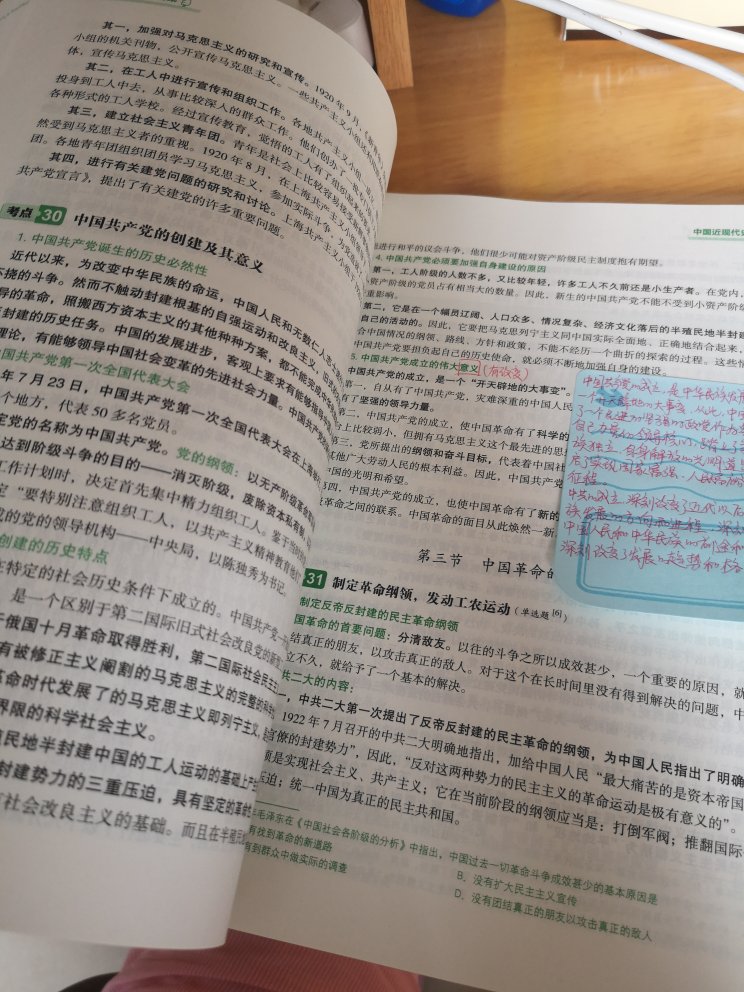 其一，加强对马克思主义的研究和宣传。1920年9月，《新青年》
小组的机关刊物，公开宣传马克思主义。一些共产主义小组还
体，宣传马克思主义。
其二，在工人中进行宣传和组织工作。各地共产主义小组
投身到工人中去，从事比较深入的群众工作。他们创办了
各种形式的工人学校。经过宣传教育，觉悟的工人有了组织起来的
其三，建立社会主义青年团。青年是社会上比较容易接受
然受到马克思主义者的重视。1920年8月，在上海共产主义小组
团。各地青年团组织团员学习马克思主义，参加实际斗争，为党造就了
其四，进行有关建党问题的研究和讨论。上海共产主义小组
共产党宣言》，提出了有关建党的许多重要问题。
考点 30 中国共产党的创建及其意义
1. 中国共产党诞生的历史必然性
近代以来，为改变中华民族的命运，中国人民和无数仁人志士
不挠的斗争。然而不触动封建根基的自强运动和改良主义，旧式
导的革命，照搬西方资本主义的其他种种方案，都不能完成
封建的历史任务。中国的发展进步，客观上要求有能够
理论，有能够领导中国社会变革的先进社会力量。中国共产党
国共产党第一次全国代表大会
年7月23日，中国共产党第一次全国代表大会在上海
个地方，代表50多名党员。
定党的名称为中国共产党。党的纲领：以无产阶级革命
达到阶级斗争的目的——消灭阶级，废除资本私有制
工作计划时，决定首先集中精力组织工人。鉴于当时
定“要特别注意组织工人，以共产主义精神教育他们
成的党的领导机构——中央局，以陈独秀为书记。
创建的历史特点
在特定的社会历史条件下成立的。中国共产党一
是一个区别于第二国际旧式社会改良党的新型
于俄国十月革命取得胜利，第二国际社会民主主义
有被修正主义阉割的马克思主义的完整的科学
革命时代发展了的马克思主义即列宁主义，
界限的科学社会主义。
殖民地半封建中国的工人运动的基础上产生
封建势力的三重压迫，具有坚定的革命性
社会改良主义的基础。而且在半殖民
中国近现代史
能进行和平的议会斗争，他们很少可能对资产阶级民主制度抱有期望。
4. 中国共产党必须要加强自身建设的原因
第一，工人阶级的人数不多，又比较年轻，许多工人不久前还是小生产者。在党内，
小资产阶级的党员占有相当大的数量。因此，新生的中国共产党不能不受到小资产阶级
重影响。
第二，它是在一个幅员辽阔、人口众多、情况复杂、经济文化落后的半殖民地半封建
自己的活动的。因此，它要把马克思列宁主义同中国实际全面地、正确地结合起来，
合中国情况的纲领、路线、方针和政策，不能不经历一个曲折的探索的过程。这些
中国共产党要担负起自己的历史使命，就必须不断地加强自身的建设。
5. 中国共产党成立的伟大意义（有改变）
中国共产党的成立，是一个“开天辟地的大事变”。
第一，自从有了中国共产党，灾难深重的中国人民
有了坚强的领导力量。
第二，中国共产党的成立，使中国革命有了科学的
台上比较弱小，但拥有马克思主义这个最先进的思
第三，党所提出的纲领和奋斗目标，代表着中国社
其他广大劳动人民的根本利益。因此，中国共产党
中国的光明和希望。
四，中国共产党的成立，也使中国革命有了新的
革命之间的联系。中国革命的面目从此焕然一新
中国共产党的成立，是中华民族发展
一个开天辟地的大事变，从此，中国
中国人民和中华民族的前途和
深刻改变了发展的趋势和格
第三节 中国革命的
31 制定革命纲领，发动工农运动（单选题[6]）
制定反帝反封建的民主革命纲领
国革命的首要问题：分清敌友。以往的斗争之所以成效甚少，一个重要的原因，就
结真正的朋友，以攻击真正的敌人。对于这个在长时间里没有得到解决的问题，中
立不久，就给予了一个基本的解决。
共二大的内容：
，中共二大第一次提出了反帝反封建的民主革命的纲领，为中国人民指出了明确
1922年7月召开的中共二大明确地指出，加给中国人民“最大痛苦的是资本帝国
官僚的封建势力”，因此，“反对这两种势力的民主主义的革命运动是极有意义的”。
领是实现社会主义、共产主义；它在当前阶段的纲领应当是：打倒军阀；推翻国际
压迫；统一中国为真正的民主共和国。
毛泽东在《中国社会各阶级的分析》中指出，中国过去一切革命斗争成效甚少的基本原因是
有找到革命的新道路
B. 没有扩大民主主义宣传
有到群众中做实际的调查
D. 没有团结真正的朋友以攻击真正的敌人